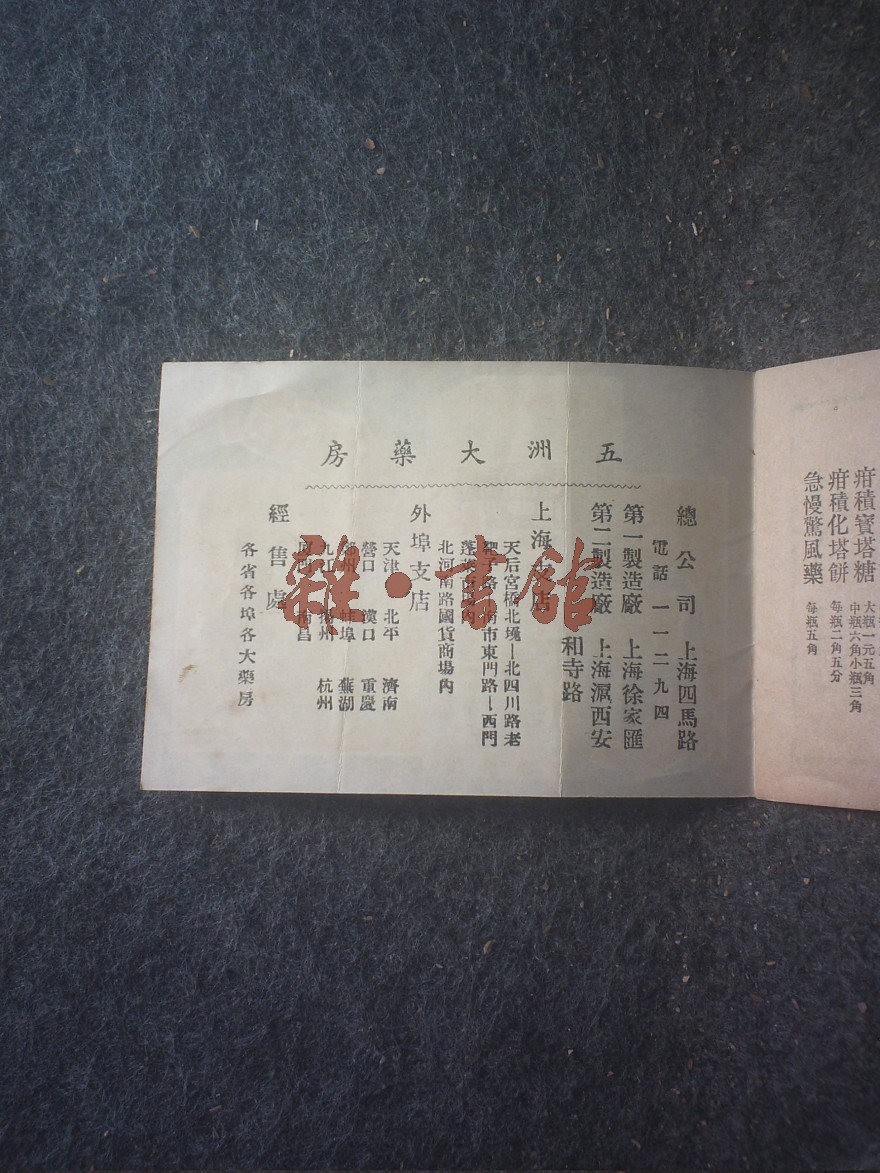 疳積寶塔糖 大瓶一元五角 中瓶六角小瓶三角
疳積化塔餅 每瓶二角五分
急慢驚風藥 每瓶五角
五洲大藥房
總公司 上海四馬路
電話 一一二九四
第一製造廠 上海徐家匯
第二製造廠 上海滬西安
和寺路
上海支店
天后宮橋北堍—北四川路老
靶子路—南市東門路—西門
蓬萊市場內
北河南路國貨商場內
外埠支店
天津 北平 濟南
營口 漢口 重慶
鄭州 蚌埠 蕪湖
九江 揚州 杭州
南昌
經售處
各省各埠各大藥房
雜·書館